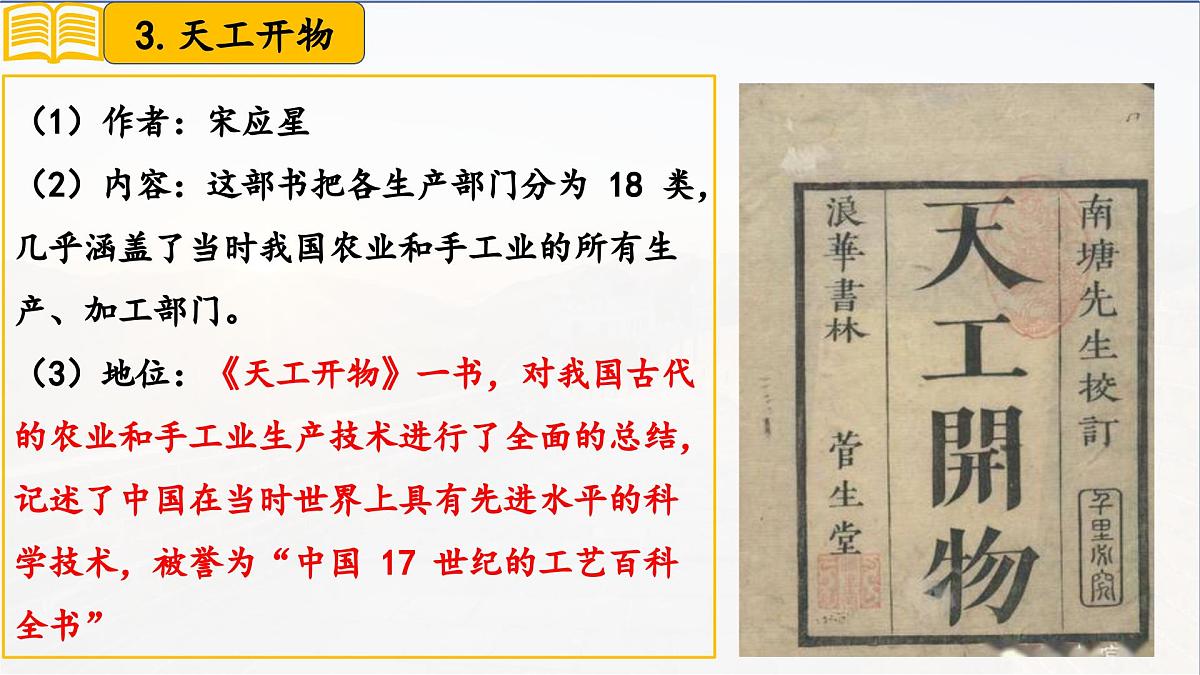 3. 天工开物
（1）作者：宋应星
（2）内容：这部书把各生产部门分为 18 类，
几乎涵盖了当时我国农业和手工业的所有生
产、加工部门。
（3）地位：《天工开物》一书，对我国古代
的农业和手工业生产技术进行了全面的总结，
记述了中国在当时世界上具有先进水平的科
学技术，被誉为“中国 17 世纪的工艺百科
全书”
南塘先生挍訂
天工開物
浪華書林
菅生堂